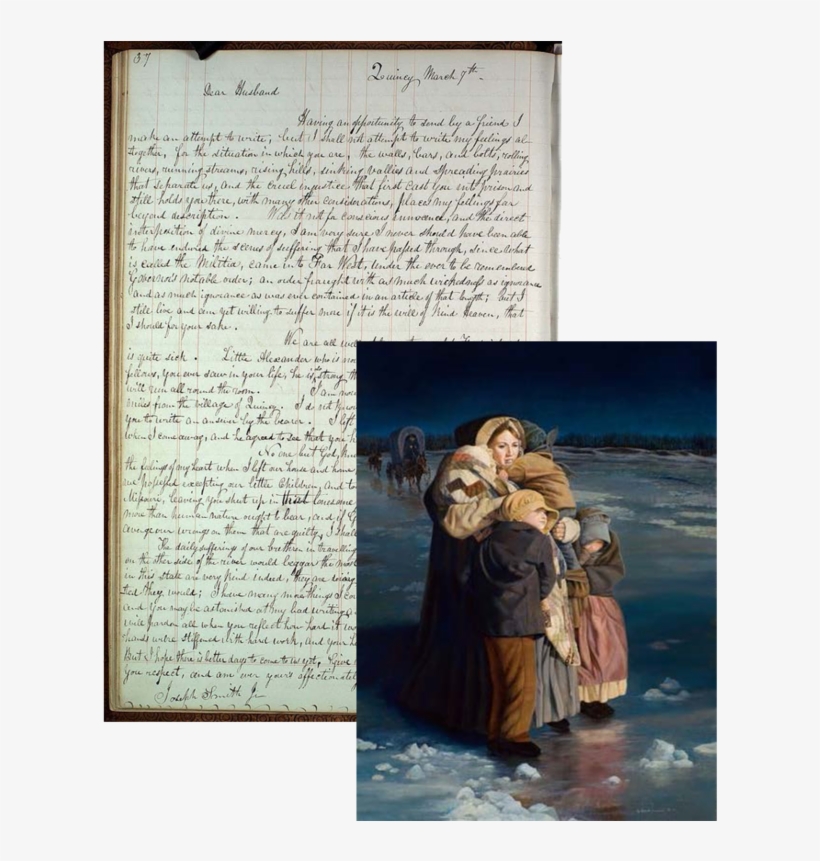 37
Quincy March 7th
Dear Husband
Having an opportunity to send by a friend I
make an attempt to write; but I shall not attempt to write my feelings al-
together, for the situation in which you are, the walls, bars, and bolts, rolling
rivers, running streams, rising hills, sinking vallies and spreading prairies
that separate us, and the cruel injustice that first cast you into prison and
still holds you there, with many other considerations, places my feelings far
beyond description. Was it not for conscious innocence, and the direct
interposition of divine mercy, I am very sure I never should have been able
to have endured the scenes of suffering that I have passed through, since what
is called the Militia, came in to Far West, under the ever to be remembered
Governor's notable order; an order fraught with as much wickedness as ignorance
and as much ignorance as was ever contained in an article of that length; but I
still live and am yet willing to suffer more if it is the will of kind Heaven, that
I should for your sake.
We are all well
is quite sick. Little Alexander who is now
fellows, you ever saw in your life, he is so strong th
will run all round the room. I am now
miles from the village of Quincy. I do not know
you to write an answer by the bearer. I left
when I came away, and he agreed to see that you h
No one but God, know
the feelings of my heart when I left our house and home
we possessed excepting our little Children, and to
Missouri, leaving you shut up in that lonesome
more than human nature ought to bear, and if G
avenge our wrongs on them that are guilty, I shall
The daily sufferings of our brethren in travelling
on the other side of the river would beggar the most
in this state are very kind indeed, they are doing
they would; I have many more things I co
and you may be astonished at my bad writing
will pardon all when you reflect how hard it wo
hands were stiffened with hard work, and your h
But I hope there is better days to come to us yet, Give
you respect, and am ever your's affectionately
Joseph Smith Jr